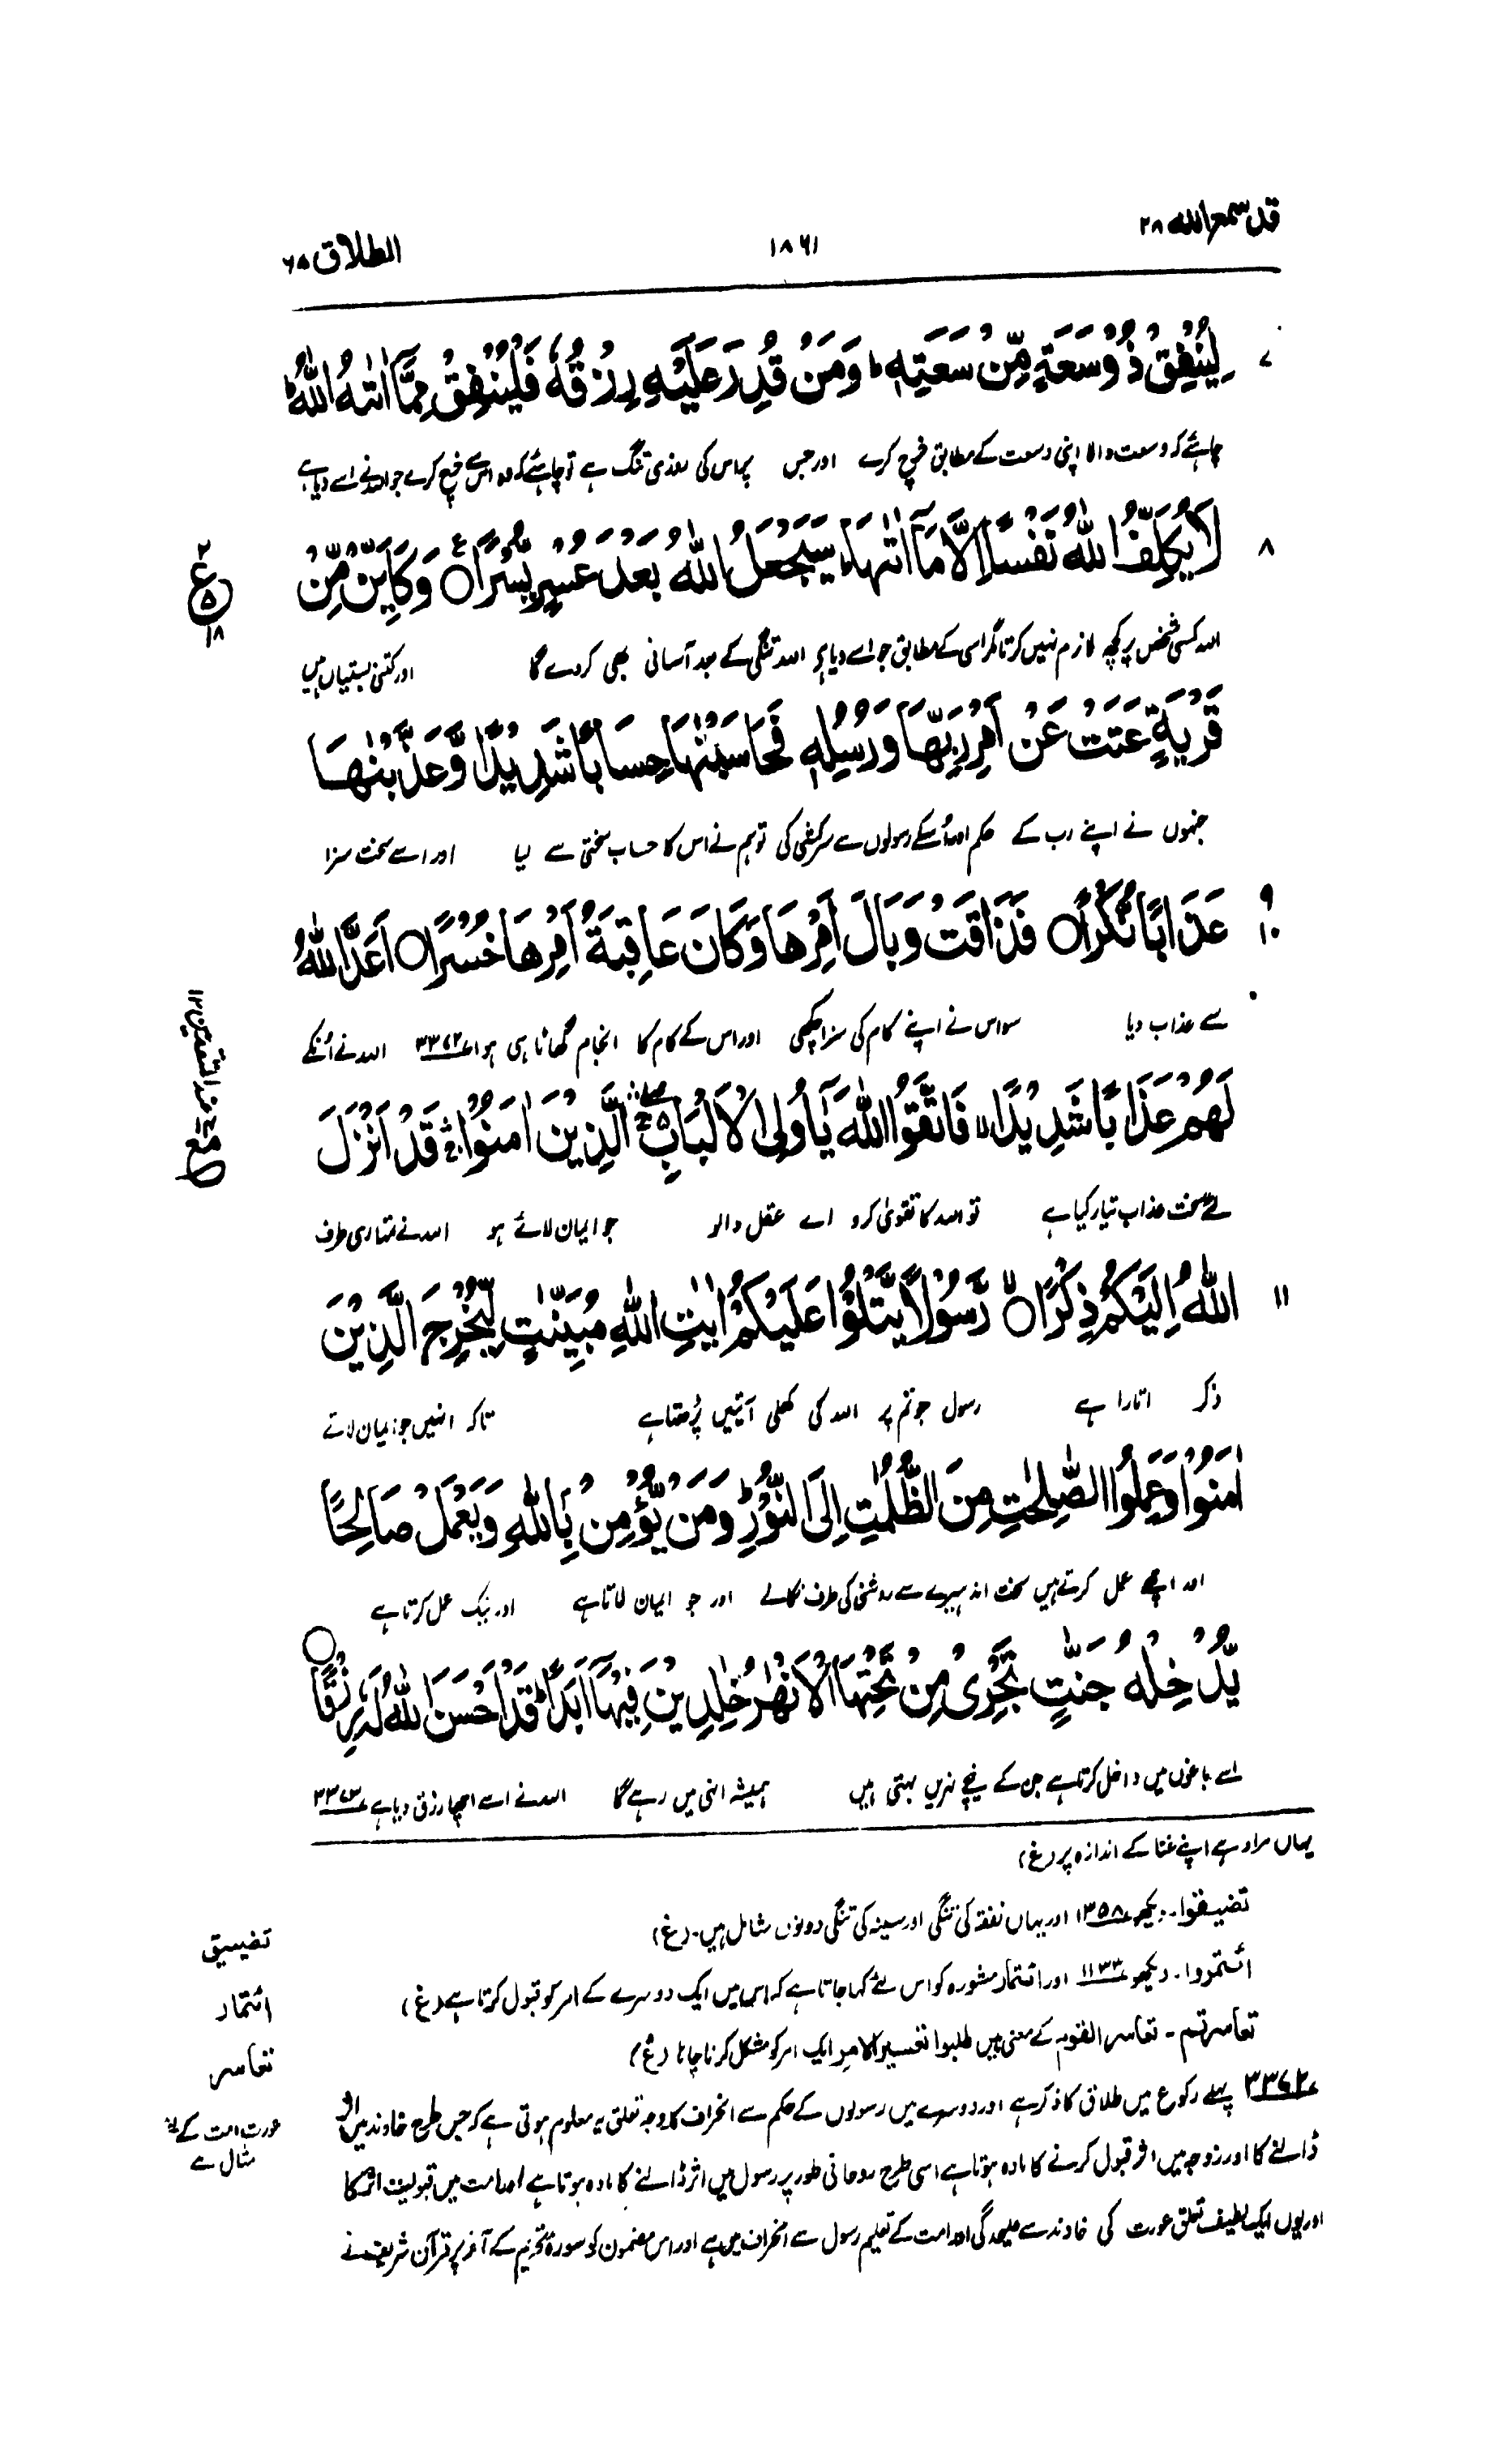 قد سمع الله ۲۸
۱۸۶۱
الطلاق ۶۵
۷ لِيُنْفِقْ ذُوْ سَعَةٍ مِّنْ سَعَتِهٖ ؕ وَمَنْ قُدِرَ عَلَيْهِ رِزْقُهٗ فَلْيُنْفِقْ مِمَّاۤ اٰتٰىهُ اللّٰهُ ؕ
چاہئے کہ وسعت والا اپنی وسعت کے مطابق خرچ کرے اور جس پر اس کی روزی تنگ ہے تو چاہئے کہ وہ اس سے خرچ کرے جو اللہ نے اسے دیا ہے
۸ لَا يُكَلِّفُ اللّٰهُ نَفْسًا اِلَّا مَاۤ اٰتٰىهَا ؕ سَيَجْعَلُ اللّٰهُ بَعْدَ عُسْرٍ يُّسْرًا ۝ وَكَاَيِّنْ مِّنْ
۲ ع ۵ ۱۸
اللہ کسی شخص پر کچھ لازم نہیں کرتا مگر اسی کے مطابق جو اسے دیا ہے اللہ تنگی کے بعد آسانی بھی کر دے گا اور کتنی بستیاں ہیں
قَرْيَةٍ عَتَتْ عَنْ اَمْرِ رَبِّهَا وَرُسُلِهٖ فَحَاسَبْنٰهَا حِسَابًا شَدِيْدًا وَّعَذَّبْنٰهَا
جنہوں نے اپنے رب کے حکم اور اُسکے رسولوں سے سرکشی کی تو ہم نے اس کا حساب سختی سے لیا اور اسے سخت سزا
۹ ۱۰ عَذَابًا نُّكْرًا ۝ فَذَاقَتْ وَبَالَ اَمْرِهَا وَكَانَ عَاقِبَةُ اَمْرِهَا خُسْرًا ۝ اَعَدَّ اللّٰهُ
سے عذاب دیا سو اس نے اپنے کام کی سزا چکھی اور اس کے کام کا انجام گھاٹا ہی ہوا ۳۳۷۲ اللہ نے اُنکے
لَهُمْ عَذَابًا شَدِيْدًا ۙ فَاتَّقُوا اللّٰهَ يٰۤاُولِى الْاَلْبَابِ الَّذِيْنَ اٰمَنُوْا ۛ قَدْ اَنْزَلَ
لئے سخت عذاب تیار کیا ہے تو اللہ کا تقویٰ کرو اے عقل والو جو ایمان لائے ہو اللہ نے تمہاری طرف
۱۱ اللّٰهُ اِلَيْكُمْ ذِكْرًا ۝ رَّسُوْلًا يَّتْلُوْا عَلَيْكُمْ اٰيٰتِ اللّٰهِ مُبَيِّنٰتٍ لِّيُخْرِجَ الَّذِيْنَ
ذکر اتارا ہے رسول جو تم پر اللہ کی کھلی آیتیں پڑھتا ہے تاکہ انہیں جو ایمان لاتے
اٰمَنُوْا وَعَمِلُوا الصّٰلِحٰتِ مِنَ الظُّلُمٰتِ اِلَى النُّوْرِ ؕ وَمَنْ يُّؤْمِنْۢ بِاللّٰهِ وَيَعْمَلْ صَالِحًا
اور اچھے عمل کرتے ہیں سخت اندھیرے سے روشنی کی طرف نکالے اور جو ایمان لاتا ہے اور نیک عمل کرتا ہے
يُّدْخِلْهُ جَنّٰتٍ تَجْرِىْ مِنْ تَحْتِهَا الْاَنْهٰرُ خٰلِدِيْنَ فِيْهَاۤ اَبَدًا ؕ قَدْ اَحْسَنَ اللّٰهُ لَهٗ رِزْقًا ۝
اسے باغوں میں داخل کرتا ہے جن کے نیچے نہریں بہتی ہیں ہمیشہ انہی میں رہے گا اللہ نے اسے اچھا رزق دیا ہے ۳۳۷۳
یہاں مراد ہے اپنے غنا کے اندازہ پر (غ)
تضیقوا۔ دیکھو ۱۳۵۸ اور یہاں نفقہ کی تنگی اور سینہ کی تنگی دونوں شامل ہیں۔ (غ)
تضییق
ائتمروا۔ دیکھو ۱۱۳۳ اور ائتمار مشورہ کو اس لئے کہا جاتا ہے کہ اس میں ایک دوسرے کے امر کو قبول کرتا ہے (غ)
ائتمار
تعاسرتم۔ تعاسر القوم کے معنی ہیں طلبوا تعسیر الامر ایک امر کو مشکل کرنا چاہا (غ)
تعاسر
۳۳۷۲ پہلے رکوع میں طلاق کا ذکر ہے اور دوسرے میں رسولوں کے حکم سے انحراف کا وجہ تعلق یہ معلوم ہوتی ہے کہ جس طرح خاوند میں اثر
عورت امت کے لئے مثال ہے
ڈالنے کا اور زوجہ میں اثر قبول کرنے کا مادہ ہوتا ہے اسی طرح روحانی طور پر رسول میں اثر ڈالنے کا مادہ ہوتا ہے اور امت میں قبولیت اثر کا
اور یوں ایک لطیف تعلق عورت کی خاوند سے علیحدگی اور امت کے تعلیم رسول سے انحراف میں ہے اور اس مضمون کو سورۂ تحریم کے آخر پر قرآن شریف نے